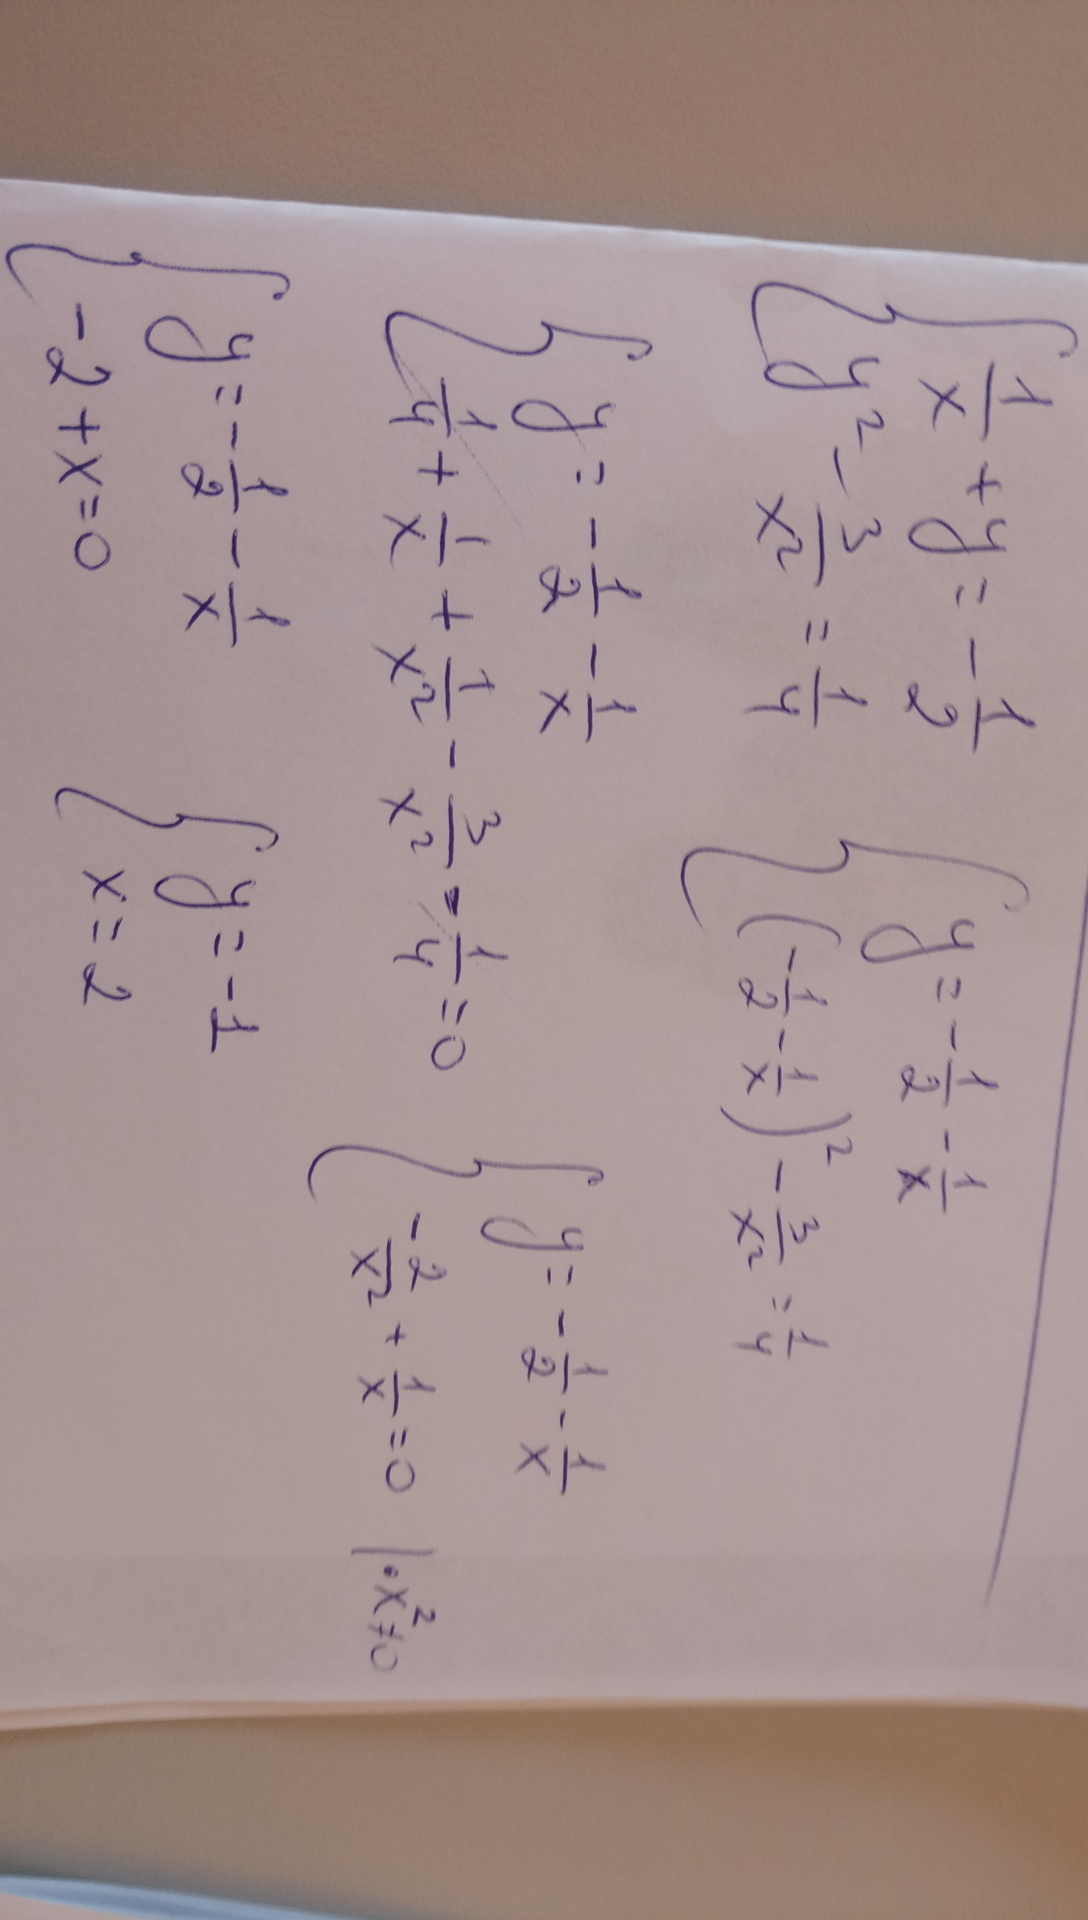 { 1/x + y = -1/2
y² - 3/x² = 1/4
{ y = -1/2 - 1/x
(-1/2 - 1/x)² - 3/x² = 1/4
{ y = -1/2 - 1/x
1/4 + 1/x + 1/x² - 3/x² - 1/4 = 0
{ y = -1/2 - 1/x
-2/x² + 1/x = 0 |·x² ≠ 0
{ y = -1/2 - 1/x
-2 + x = 0
{ y = -1
x = 2